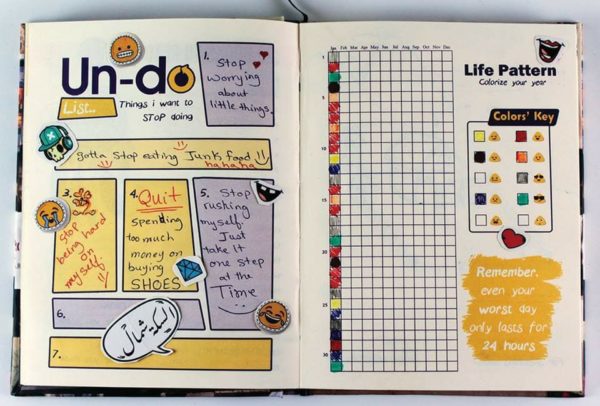 Un-do
List..
Things i want to
STOP doing
1. Stop
worrying
about
little things.
Gotta Stop eating Junk food
hahaha
3.
Stop
being hard
on
myself
4. Quit
spending
too much
money on
buying
SHOES
5. Stop
rushing
myself
Just
take it
one step
at the
Time
6.
7.
Jan Feb Mar Apr May Jun Jul Aug Sep Oct Nov Dec
1
5
10
15
20
25
30
Life Pattern
Colorize your year
Colors' Key
Remember,
even your
worst day
only lasts for
24 hours